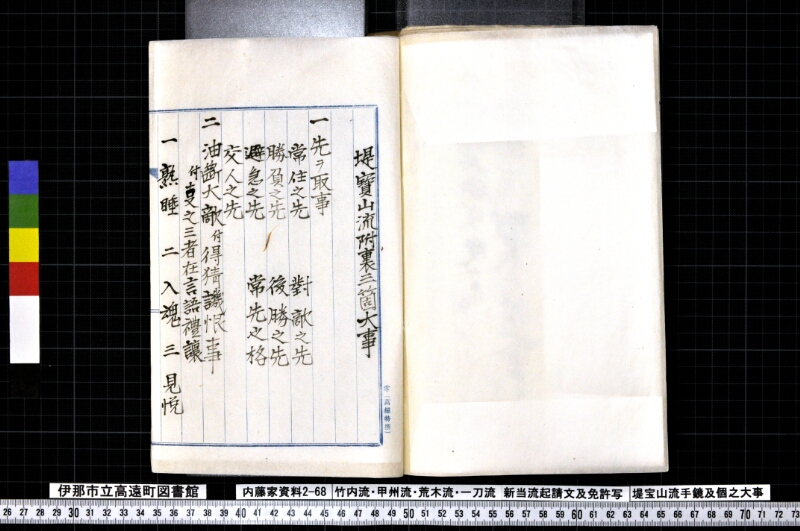 堤寳山流附裏三箇大事
一 先ヲ取事
常住之先 對敵之先
勝負之先 後勝之先
避急之先 常先之格
交人之先
二 油断大敵付得猜譏恨事
付 之三者在言語禮讓
一 熟睡 二 入魂 三 見悦
伊那市立高遠町図書館
内藤家資料2-68
竹内流・甲州流・荒木流・一刀流 新当流起請文及免許写
堤宝山流手鏡及個之大事
26 27 28 29 30 31 32 33 34 35 36 37 38 39 40 41 42 43 44 45 46 47 48 49 50 51 52 53 54 55 56 57 58 59 60 61 62 63 64 65 66 67 68 69 70 71 72 73